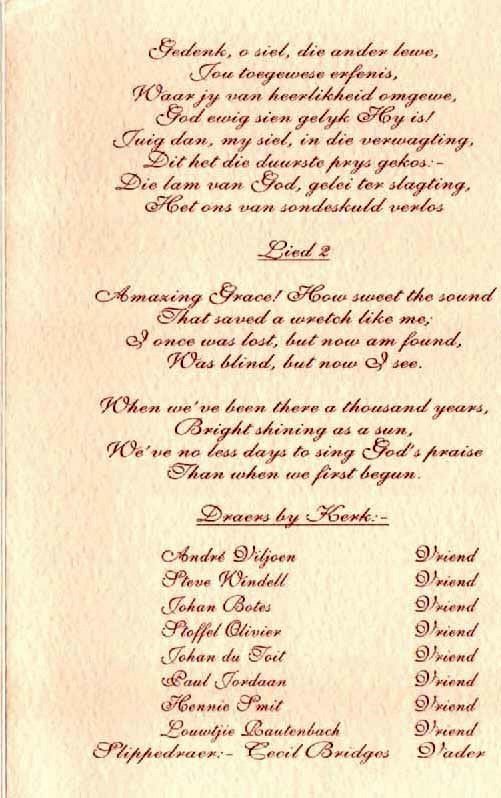 Gedenk, o siel, die ander lewe,
Jou toegewese erfenis,
Waar jy van heerlikheid omgewe,
God ewig sien gelyk Hy is!
Juig dan, my siel, in die verwagting,
Dit het die duurste prys gekos:-
Die lam van God, gelei ter slagting,
Het ons van sondeskuld verlos
Lied 2
Amazing Grace! How sweet the sound
That saved a wretch like me;
I once was lost, but now am found,
Was blind, but now I see.
When we've been there a thousand years,
Bright shining as a sun,
We've no less days to sing God's praise
Than when we first begun.
Draers by Kerk:-
André Viljoen Vriend
Steve Windell Vriend
Johan Botes Vriend
Stoffel Olivier Vriend
Johan du Toit Vriend
Paul Jordaan Vriend
Hennie Smit Vriend
Louwtjie Rautenbach Vriend
Slippedraer:- Cecil Bridges Vader